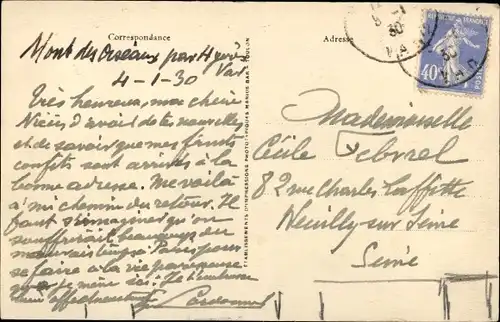 Correspondance
Mont des Oiseaux par Hyères
Var
4-1-30
Très heureux, ma chère
Nièce d'avoir de tes nouvelles
et de savoir que mes fruits
confits sont arrivés à la
bonne adresse. Me voilà
à mi chemin du retour. Il
faut s'imaginer qu'on
souffrirait beaucoup du
mauvais temps à Paris pour
se faire à la vie parisienne
même ici. Je t'embrasse
bien affectueusement
ETABLISSEMENTS D'IMPRESSIONS PHOTOTYPIQUES MARIUS BAR - TOULON
Adresse
40c
POSTES
VAR
Mademoiselle
Cécile
82 rue Charles Laffitte
Neuilly-sur-Seine
Seine